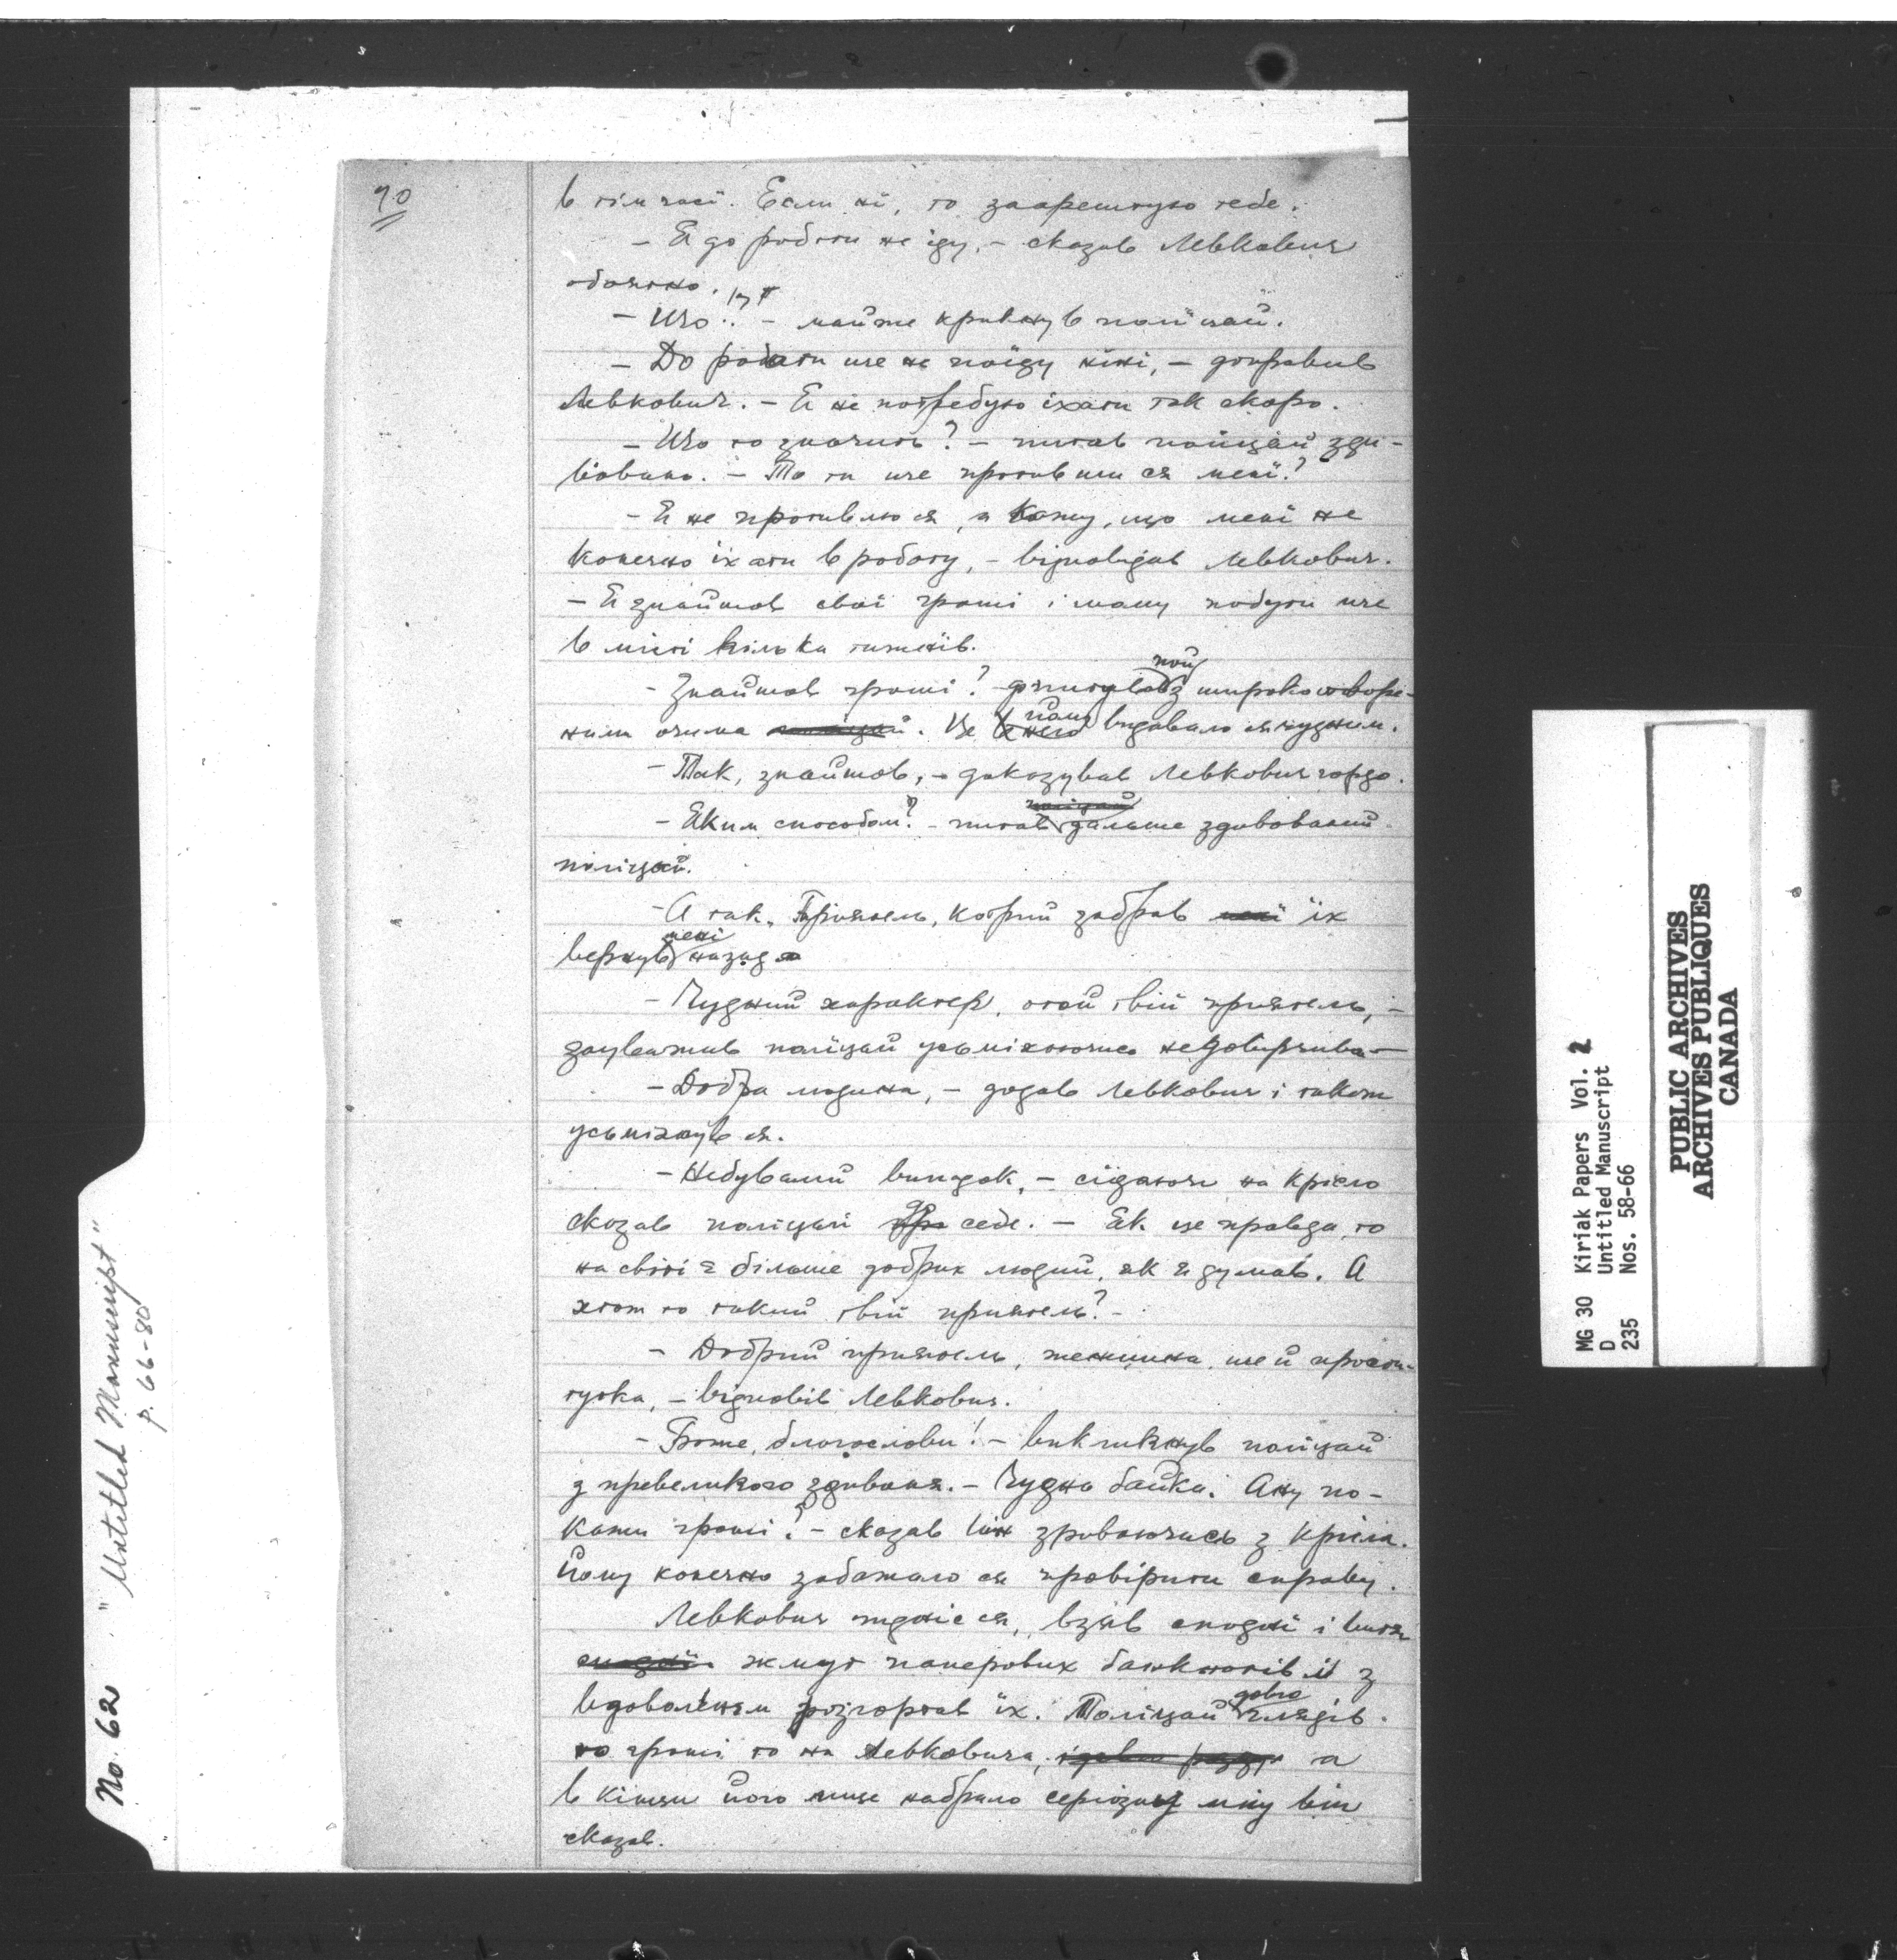 70
в тім часї. Если нї, то заарештую тебе.
– Я до роботи не їду, – сказав Левкович
обоятно.
– Що!? – майже крикнув полїцай.
– До роботи ще не поїду нинї, – доправив
Левкович. – Я не потребую їхати так скоро.
– Що то значить? – питав полїцай зди-
вовано. – То ти ще противиш ся менї?
– Я не противлю ся, а кажу, що менї не
конечно їхати в роботу, – відповідав Левкович.
– Я знайшов свої гроші і можу побути ще
в місті кілька тижнїв.
– Знайшов гроші? – запитував той з широко створе-
ним очима полїцай. Це видавало ся чудним.
– Так, знайшов, – доказував Левкович гордо.
– Яким способом? – питав дальше здивований
полїцай.
– А так. Приятель, котрий забрав менї їх
вернув менї назад.
– Чудний характер, отой твій приятель, –
зауважив полїцай усьміхаючись недовірчиво –
– Добра людина, – додав Левкович і також
усьміхнув ся.
– Небувалий випадок, – сїдаючи на крісло
сказав полїцай до себе. – Як це правда, то
на світї є більше добрих людий, як я думав. А
хтож то такий твій приятель? –
– Добрий приятель, женщина, ще й прости-
тутка, – відповів Левкович.
– Боже, благослови! – викликнув полїцай
з превеликого здивованя. – Чудна байка. Ану по-
кажи гроші? – сказав він зриваючись з крісла.
Йому конечно забажало ся провірити справу.
Левкович піднїс ся, взяв сподні і витяг
жмут паперових банкнотів й з
вдоволенєм розгортав їх. Полїцай добре глядїв
то гроші то на Левковича, та
в кінци його лице набрало серіозну міну він
сказав.
No. 62 "Untitled Manuscript"
p. 66-80
MG 30 Kiriak Papers Vol. 2
D Untitled Manuscript
235 Nos. 58-66
PUBLIC ARCHIVES
ARCHIVES PUBLIQUES
CANADA